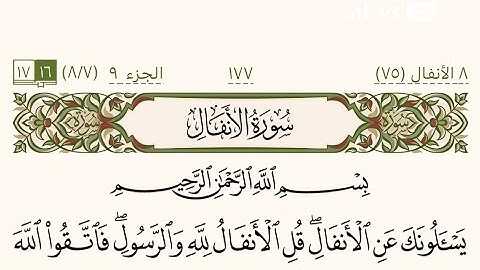 ٨ الأنفال (٧٥) ١٧٧ الجزء ٩ (٨/٧) ١٦ ١٧
سُورَةُ الأَنفَالِ
بِسْمِ اللَّهِ الرَّحْمَٰنِ الرَّحِيمِ
يَسْـَٔلُونَكَ عَنِ ٱلْأَنفَالِۖ قُلِ ٱلْأَنفَالُ لِلَّهِ وَٱلرَّسُولِۖ فَٱتَّقُوا۟ ٱللَّهَ